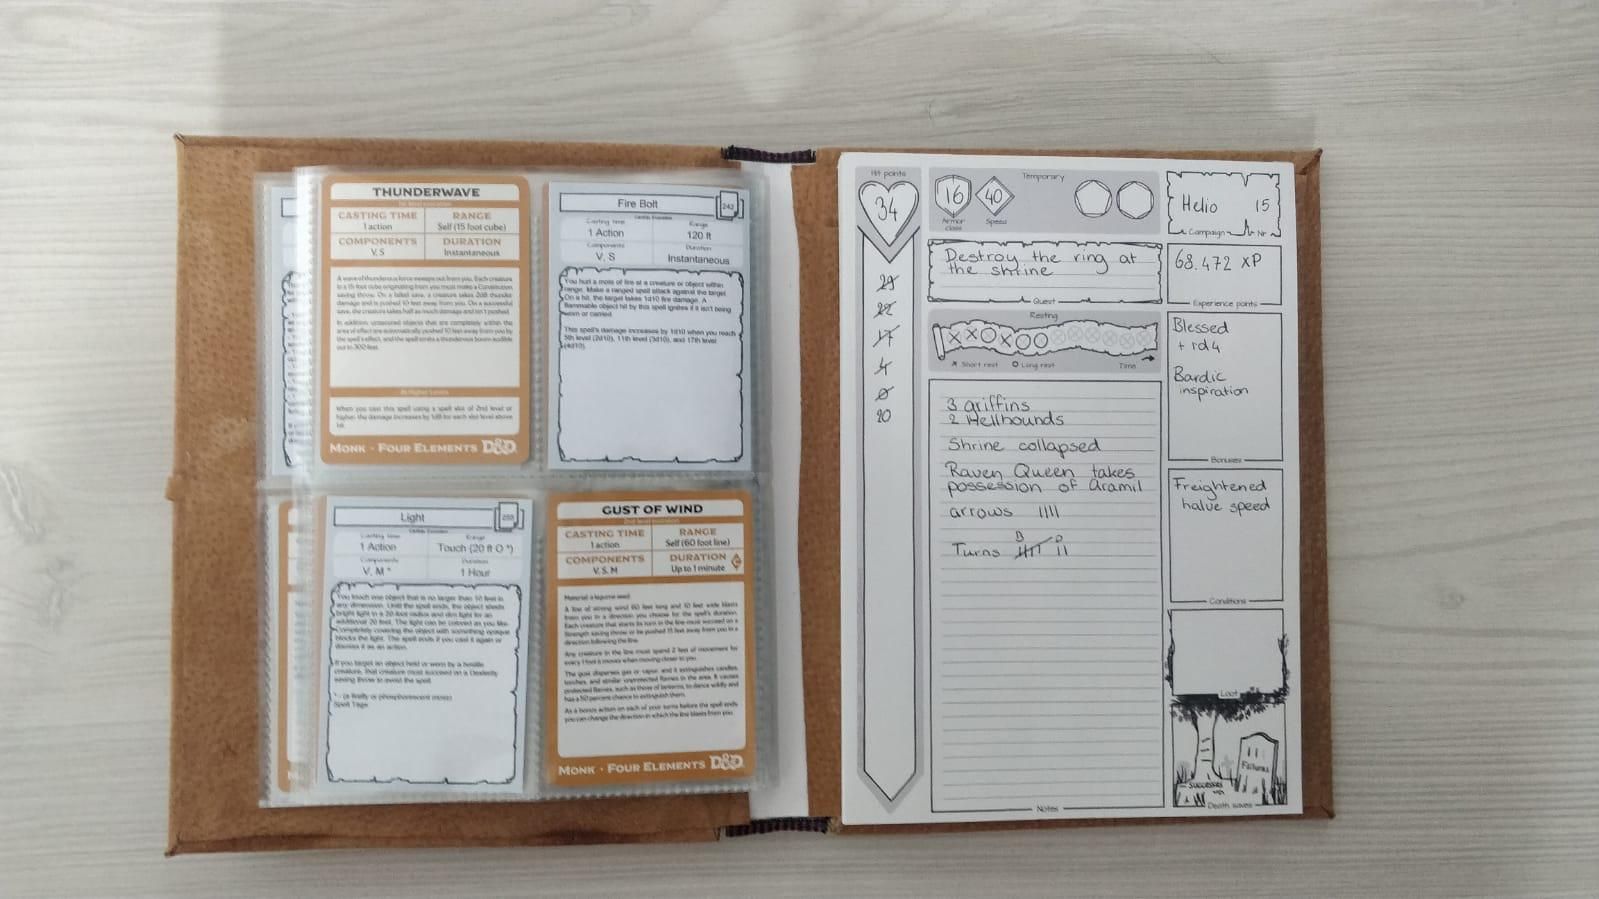 THUNDERWAVE
1st level evocation
CASTING TIME
1 action
RANGE
Self (15 foot cube)
COMPONENTS
V, S
DURATION
Instantaneous
A wave of thunderous force sweeps out from you. Each creature
in a 15 foot cube originating from you must make a Constitution
saving throw. On a failed save, a creature takes 2d8 thunder
damage and is pushed 10 feet away from you. On a successful
save, the creature takes half as much damage and isn't pushed.
In addition, unsecured objects that are completely within the
area of effect are automatically pushed 10 feet away from you by
the spell's effect, and the spell emits a thunderous boom audible
out to 300 feet.
At Higher Levels
When you cast this spell using a spell slot of 2nd level or
higher, the damage increases by 1d8 for each slot level above
1st.
MONK · FOUR ELEMENTS D&D
Fire Bolt
242
Casting time
1 Action
Range
120 ft
Components
V, S
Duration
Instantaneous
You hurl a mote of fire at a creature or object within
range. Make a ranged spell attack against the target.
On a hit, the target takes 1d10 fire damage. A
flammable object hit by this spell ignites if it isn't being
worn or carried.
This spell's damage increases by 1d10 when you reach
5th level (2d10), 11th level (3d10), and 17th level
(4d10).
Light
255
Casting time
1 Action
Range
Touch (20 ft O *)
Components
V, M *
Duration
1 Hour
You touch one object that is no larger than 10 feet in
any dimension. Until the spell ends, the object sheds
bright light in a 20-foot radius and dim light for an
additional 20 feet. The light can be colored as you like.
Completely covering the object with something opaque
blocks the light. The spell ends if you cast it again or
dismiss it as an action.
If you target an object held or worn by a hostile
creature, that creature must succeed on a Dexterity
saving throw to avoid the spell.
* - (a firefly or phosphorescent moss)
Spell Tags:
GUST OF WIND
2nd level evocation
CASTING TIME
1 action
RANGE
Self (60 foot line)
COMPONENTS
V, S, M
DURATION
Up to 1 minute
C
Material: a legume seed
A line of strong wind 60 feet long and 10 feet wide blasts
from you in a direction you choose for the spell's duration.
Each creature that starts its turn in the line must succeed on a
Strength saving throw or be pushed 15 feet away from you in a
direction following the line.
Any creature in the line must spend 2 feet of movement for
every 1 foot it moves when moving closer to you.
The gust disperses gas or vapor, and it extinguishes candles,
torches, and similar unprotected flames in the area. It causes
protected flames, such as those of lanterns, to dance wildly and
has a 50 percent chance to extinguish them.
As a bonus action on each of your turns before the spell ends
you can change the direction in which the line blasts from you.
MONK · FOUR ELEMENTS D&D
Hit points
34
29
22
17
4
0
20
16
Armor
class
40
Speed
Temporary
Helio 15
Campaign Nr
Destroy the ring at
the shrine
Quest
68.472 XP
Experience points
Resting
Short rest
Long rest
Time
Blessed
+ 1d4
Bardic
inspiration
Bonuses
3 griffins
2 Hellhounds
Shrine collapsed
Raven Queen takes
possession of Aramil
arrows ||||
B D
Turns |||| ||
Notes
Freightened
halve speed
Conditions
Loot
Successes
Failures
Death saves